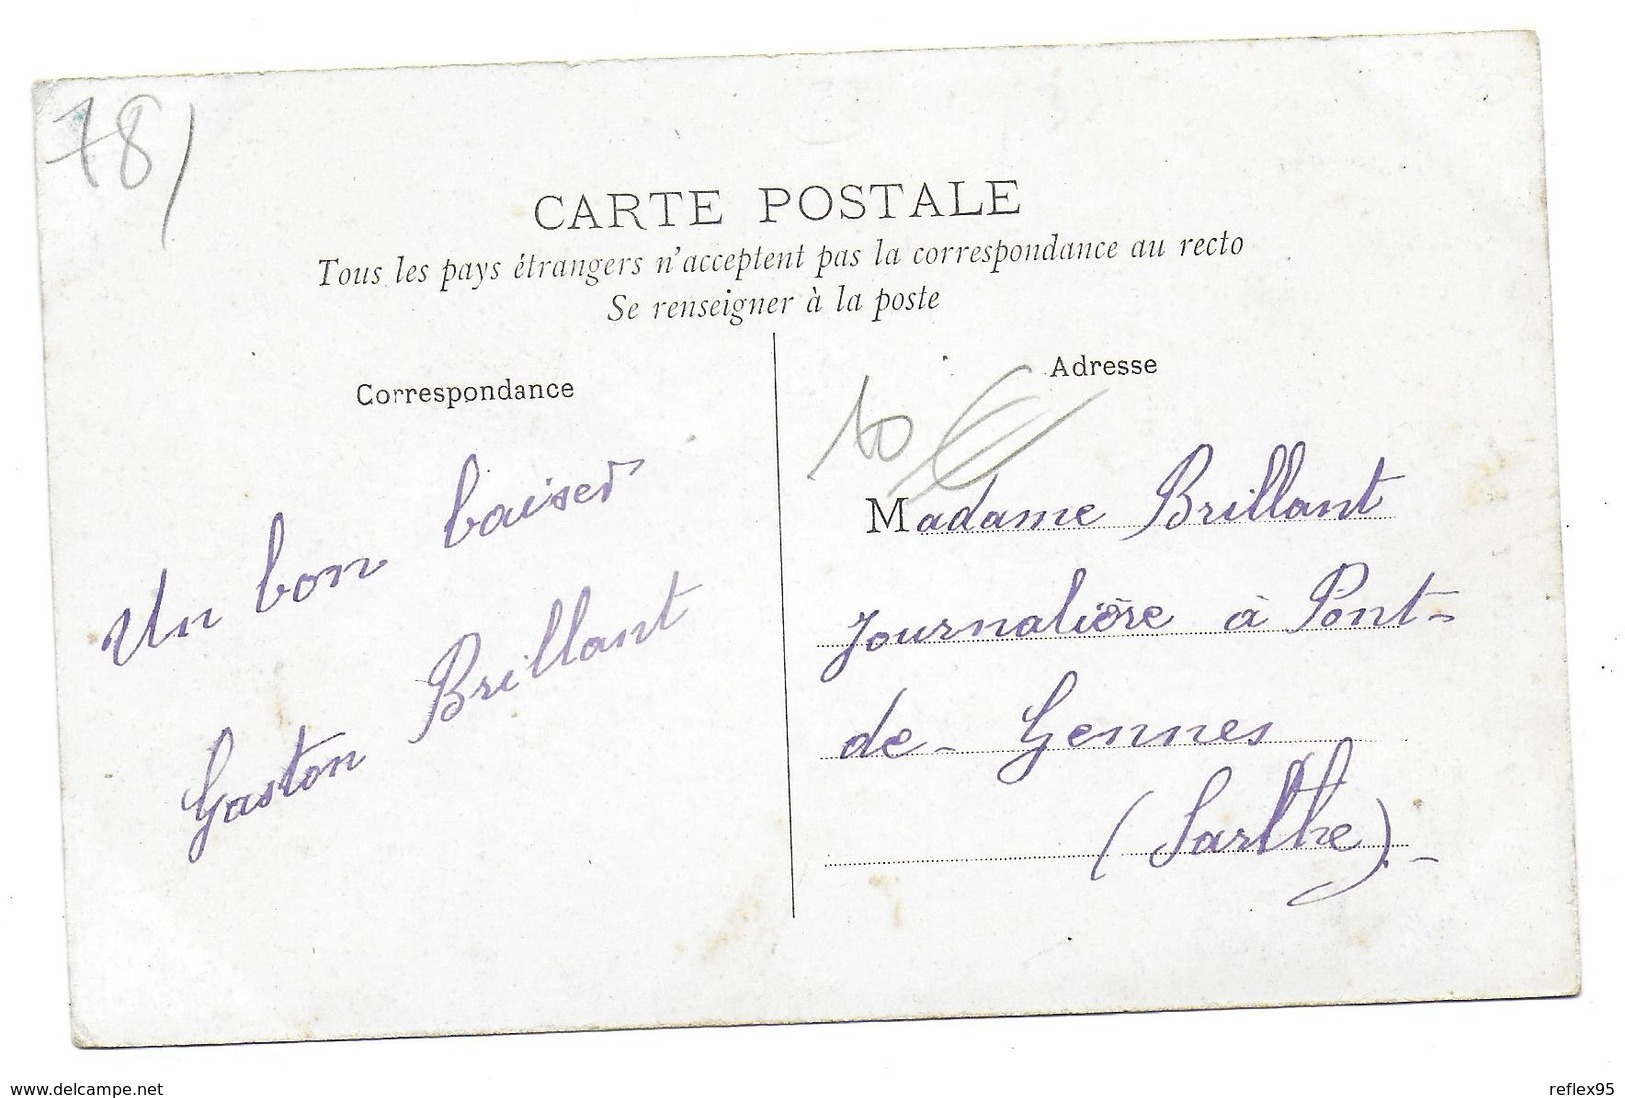 78/
CARTE POSTALE
Tous les pays étrangers n'acceptent pas la correspondance au recto
Se renseigner à la poste
Correspondance
Un bon baiser
Gaston Brillant
Adresse
10 €
Madame Brillant
Journalière à Pont-
de-Gennes
(Sarthe).-
www.delcampe.net
reflex95